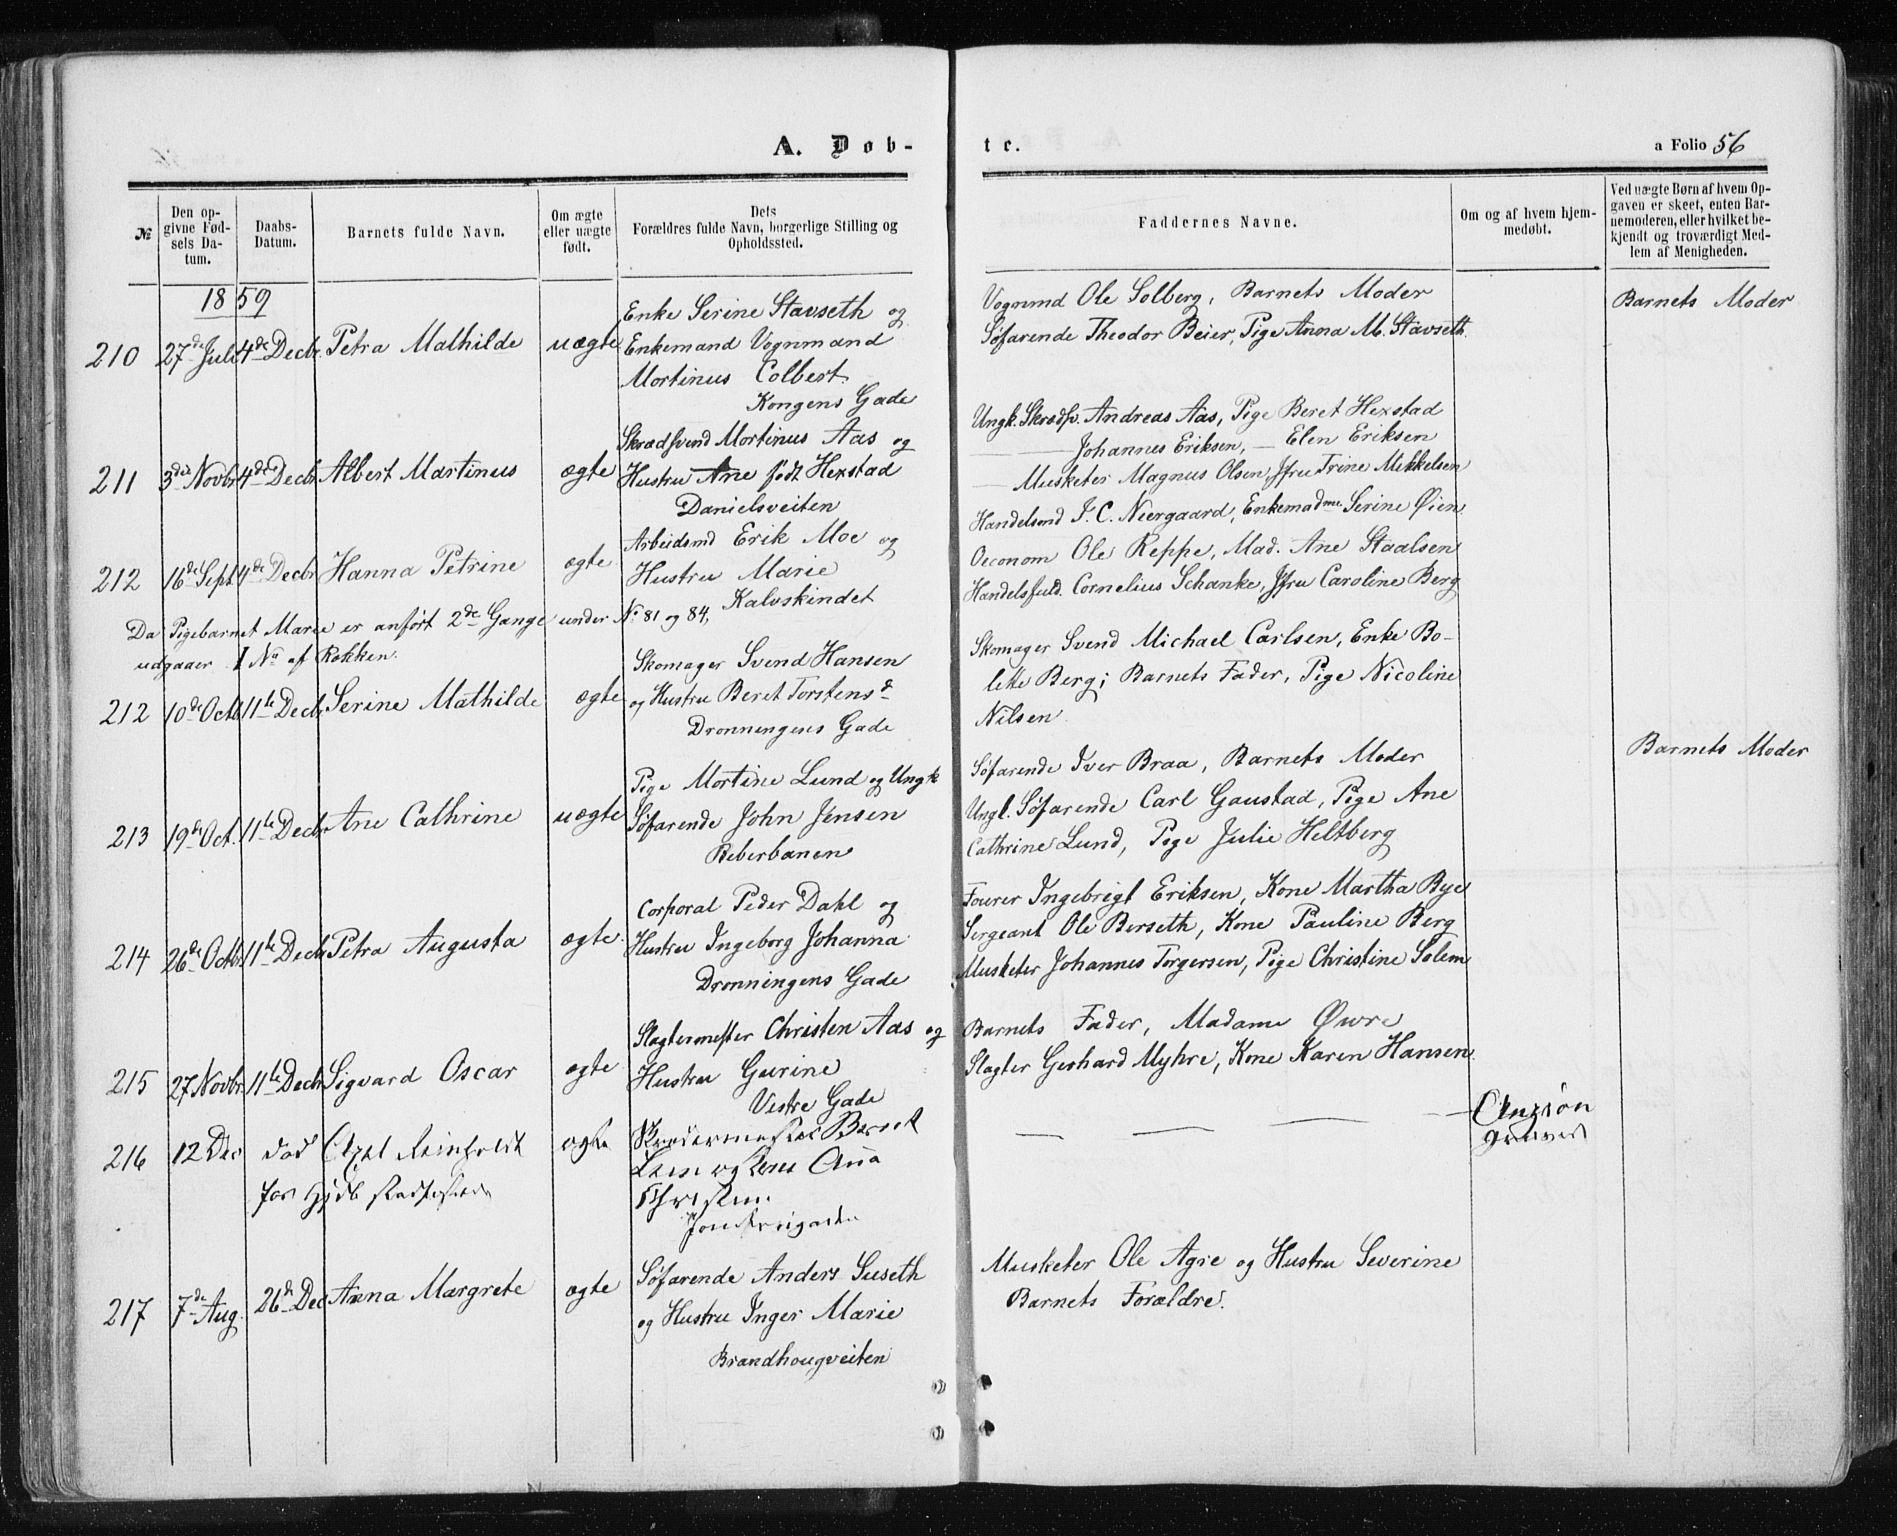 A. Døb-
te.
a Folio 56
№
Den op-
givne Fød-
sels Da-
tum.
Daabs-
Datum.
Barnets fulde Navn.
Om ægte
eller uægte
født.
Dets
Forældres fulde Navn, borgerlige Stilling og
Opholdssted.
Faddernes Navne.
Om og af hvem hjem-
medøbt.
Ved uægte Børn af hvem Op-
gaven er skeet, enten Bar-
nemoderen, eller hvilket be-
kjendt og troværdigt Med-
lem af Menigheden.
1859
210 27de Juli 4de Decbr. Petra Mathilde uægte
Enke Serine Stavseth og
Enkemand Vognmand
Mortinus Colbert.
Kongens Gade
Vognmd Ole Solberg, Barnets Moder
Søfarende Theodor Beier, Pige Anna M. Stavseth.
Barnets Moder
211 3die Novbr 4de Decbr Albert Martinus ægte
Skrædsvend Mortinus Aas og
Hustru Ane født Hexstad
Danielsveiten
Ungk. Skrædsv. Andreas Aas, Pige Beret Hexstad
— Johannes Eriksen, — Elen Eriksen
— Musketer Magnus Olsen, Jfru Trine Mikkelsen
212 16de Sept 4de Decbr Hanna Petrine ægte
Arbeidsmd Erik Moe og
Hustru Marie
Kalvskindet
Handelsmd J. C. Neergaard, Enkemadme Serine Øien
Oeconom Ole Reppe, Mad. Ane Staalsen
Handelsfuld. Cornelius Schanke, Jfru Caroline Berg
Da Pigebarnet Marie er anført 2de Gange under No 81 og 84,
udgaaer 1 No af Rækken.
212 10de Octb 11te Decbr Serine Mathilde ægte
Skomager Svend Hansen
og Hustru Beret Torstensd
Dronningens Gade
Skomager Svend Michael Carlsen, Enke Bo-
lette Berg; Barnets Fader, Pige Nicoline
Nilsen
213 19de Oct. 11te Decbr Ane Cathrine uægte
Pige Mortine Lund og Ungk
Søfarende John Jensen
Reberbanen
Søfarende Iver Braa, Barnets Moder
Ungk. Søfarende Carl Gaustad, Pige Ane
Cathrine Lund, Pige Julie Heltberg
Barnets Moder
214 26de Octbr 11te Decbr Petra Augusta ægte.
Corporal Peder Dahl og
Hustru Ingeborg Johanna
Dronningens Gade
Fourer Ingebrigt Eriksen, Kone Martha Bye
Sergeant Ole Berseth, Kone Pauline Berg
Musketer Johannes Torgersen, Pige Christine Solem
215 27 Novbr. 11te Decbr Sigvard Oscar ægte
Slagtermester Christen Aas og
Hustru Gurine
Vestre Gade
Barnets Fader, Madame Øwre
Slagter Gerhard Myhre, Kone Karen Hansen.
216 12 Dec død Axel Reinholdt ægte
før Hjdb
Skredermester Bernt
og Kone Ana
217 7de Aug. 26de Dec Anna Margrete ægte
Søfarende Anders Suseth
og Hustru Inger Marie
Brandhougveiten
Musketer Ole Agre og Hustru Severine
Barnets Forældre.